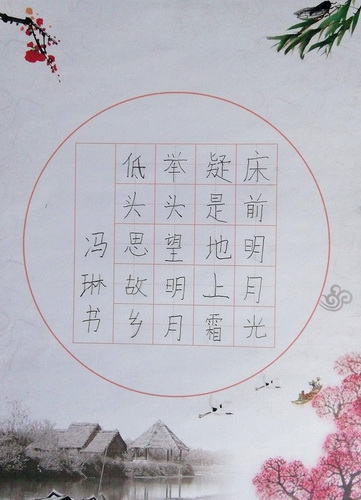 床前明月光
疑是地上霜
举头望明月
低头思故乡
冯琳书